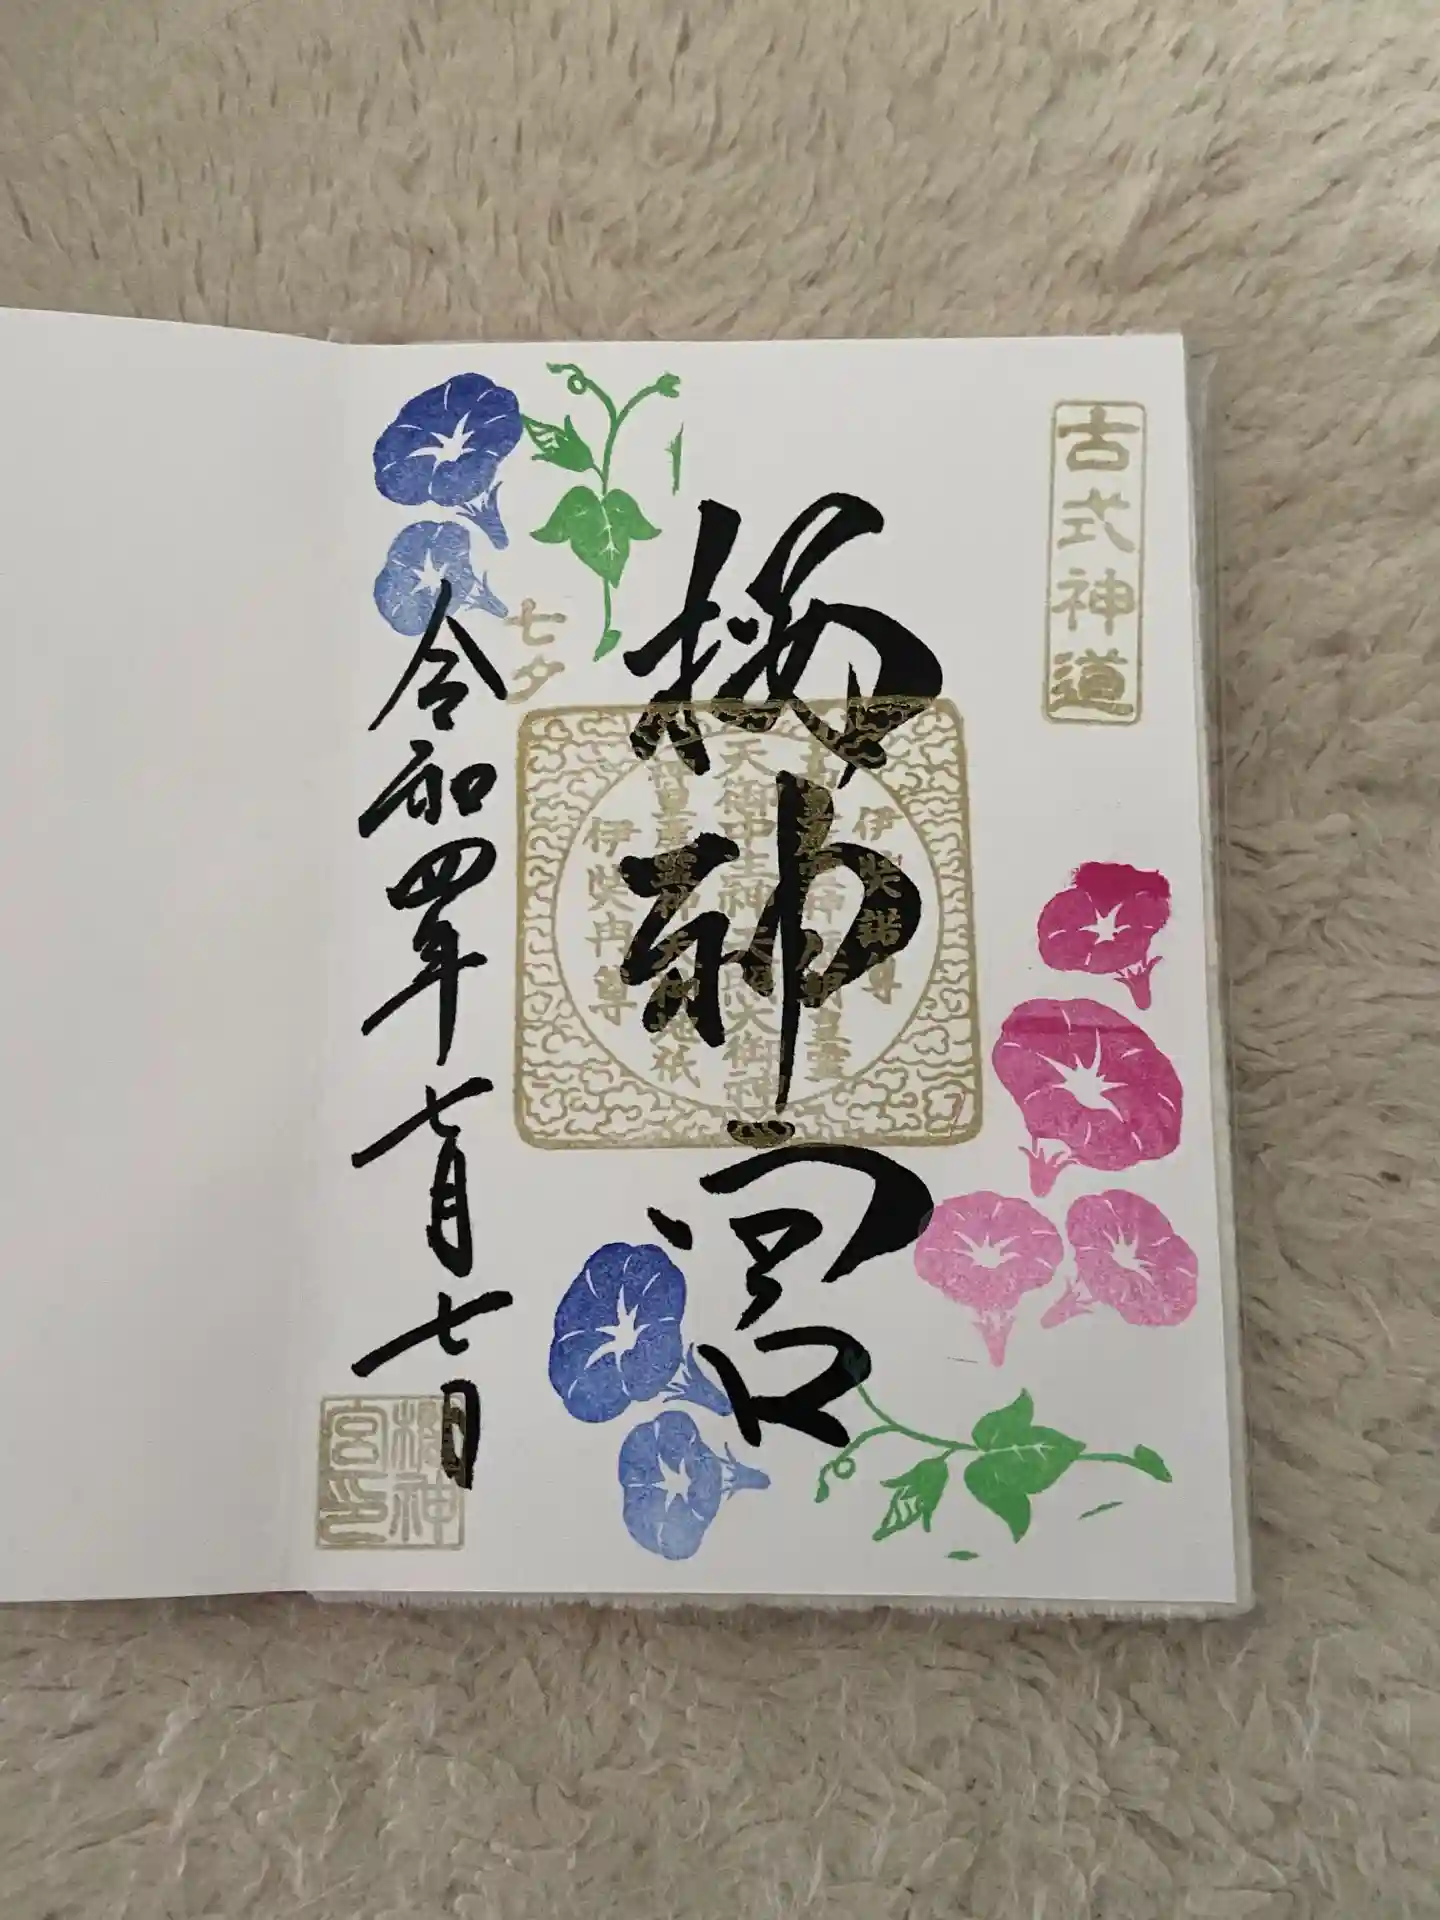 古式神道
櫻神宮
伊奘諾尊
天御中主神 天照大御神
天神地祇
伊奘冉尊
七夕
令和四年七月七日
櫻神
宮印